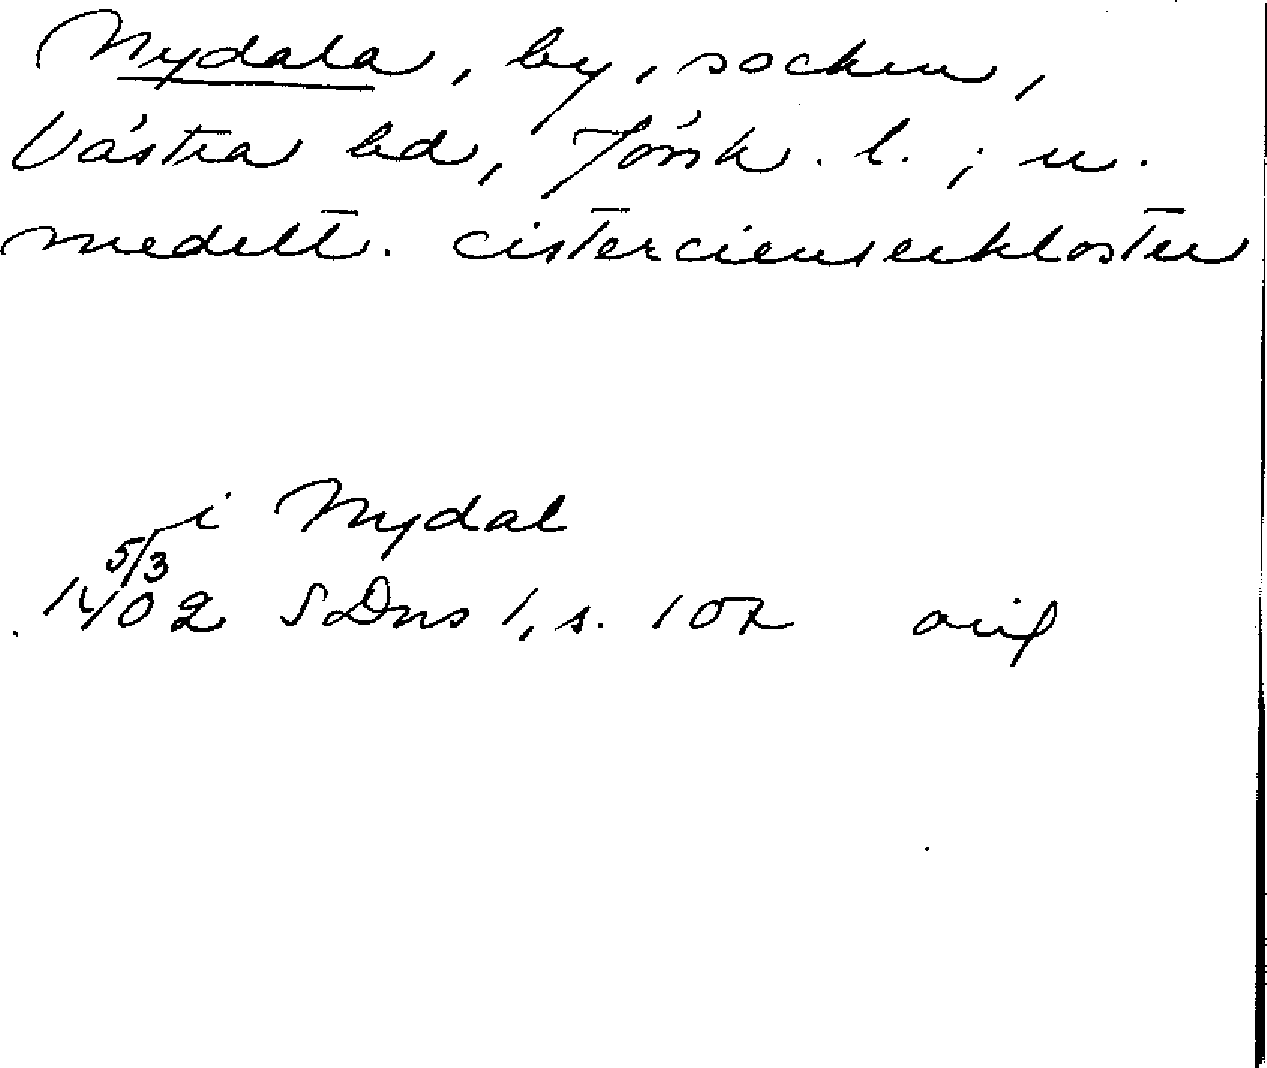 Nydala, by, socken,
Västra hd, Jönk. l.; u.
medelt. cistercienserkloster
i Nydal
5/3
1402 SDns 1, s. 107 orig